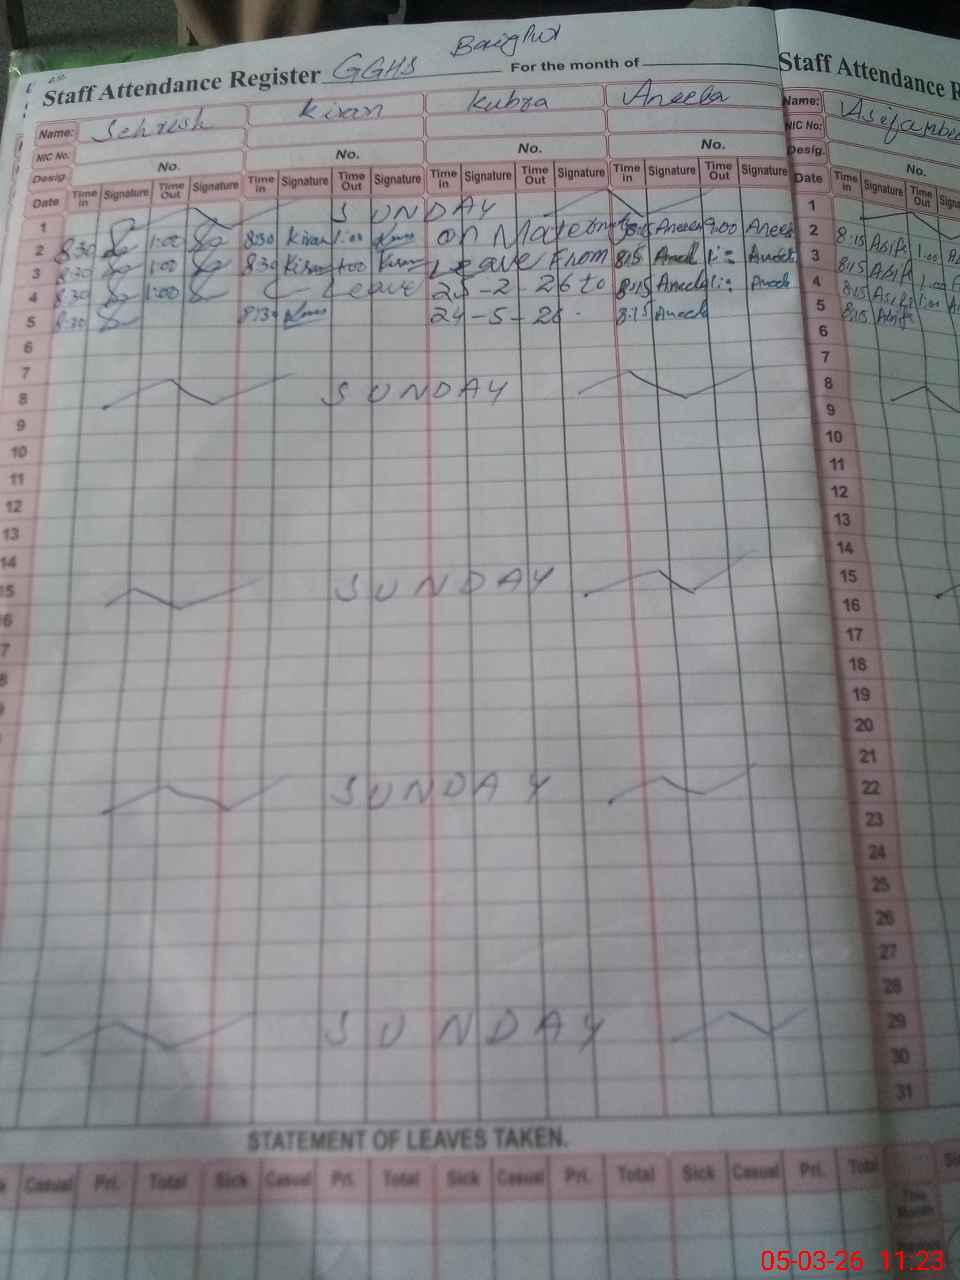 Staff Attendance Register GGHS Baighot For the month of
Staff Attendance R
Name: Sehrish Kiran Kubra Aneela
Name:
NIC No:
NIC No:
Desig. No. No. No. No.
Desig. No.
Date Time in Signature Time Out Signature Time in Signature Time Out Signature Time in Signature Time Out Signature Time in Signature Time Out Signature
Date Time in Signature Time Out Signa
1 SUNDAY
1
2 8:30 1:00 8:30 Kiran 1:00 on Maternity 8:15 Aneela 9:00 Aneela
2 8:15 Asifa 1:00
3 8:30 1:00 8:30 Kiran 1:00 Kiran Leave From 8:15 Aneela 1:= Aneela
3 8:15 Asifa 1:00
4 8:30 1:00 Leave 25-2-26 to 8:15 Aneela 1:= Aneela
4 8:15 Asifa 1:00
5 8:30 8:30 24-5-26. 8:15 Aneela
5 8:15 Asifa
6
6
7
7
8 SUNDAY
8
9
9
10
10
11
11
12
12
13
13
14
14
15 SUNDAY
15
16
16
17
17
18
18
19
20
21
SUNDAY
22
23
24
25
26
27
28
SUNDAY
29
30
31
STATEMENT OF LEAVES TAKEN.
Casual Pri. Total Sick Casual Pri. Total Sick Casual Pri. Total Sick Casual Pri. Total
This Month
05-03-26 11:23